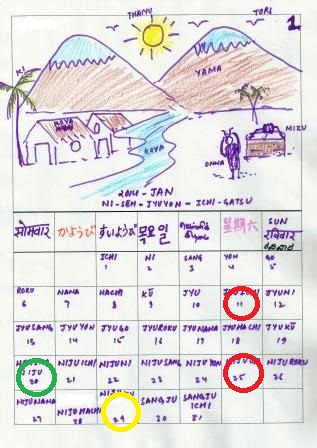 THAIYU
TORI
1
KI
YAMA
MIZU
KAVA
ONNA
2014 - JAN
NI-SEN-JYUYON-ICHI-GATSU
सोमवार かようび すいようび 목요일 星期六 SUN रविवार
ICHI NI SANG YON GO
1 2 3 4 5
ROKU NANA HACHI KŪ JYU JYUNI
6 7 8 9 10 11 12
JYUSANG JYUYON JYUGO JYUROKU JYUNANA JYUHACHI JYUKŪ
13 14 15 16 17 18 19
NIJU NIJUICHI NIJUNI NIJUSANG NIJUYON NIJUROKU
20 21 22 23 24 25 26
NIJUNANA NIJUHACHI SANGJU SANGJU ICHI
27 28 29 30 31